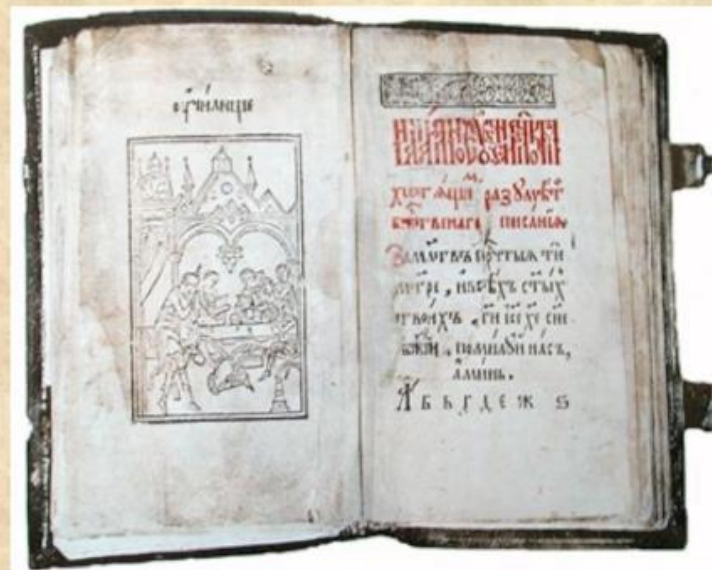 оучилище
хотящи<sup>м</sup> разумѣти
бжтвенаго писанїя
За млтвъ прчтыя ти
мтре, и всѣхъ стыхъ
твоихъ, ги ісе хе сне
бжїи, помилуи насъ,
аминь.
А Б В Г Д Е Ж Ѕ